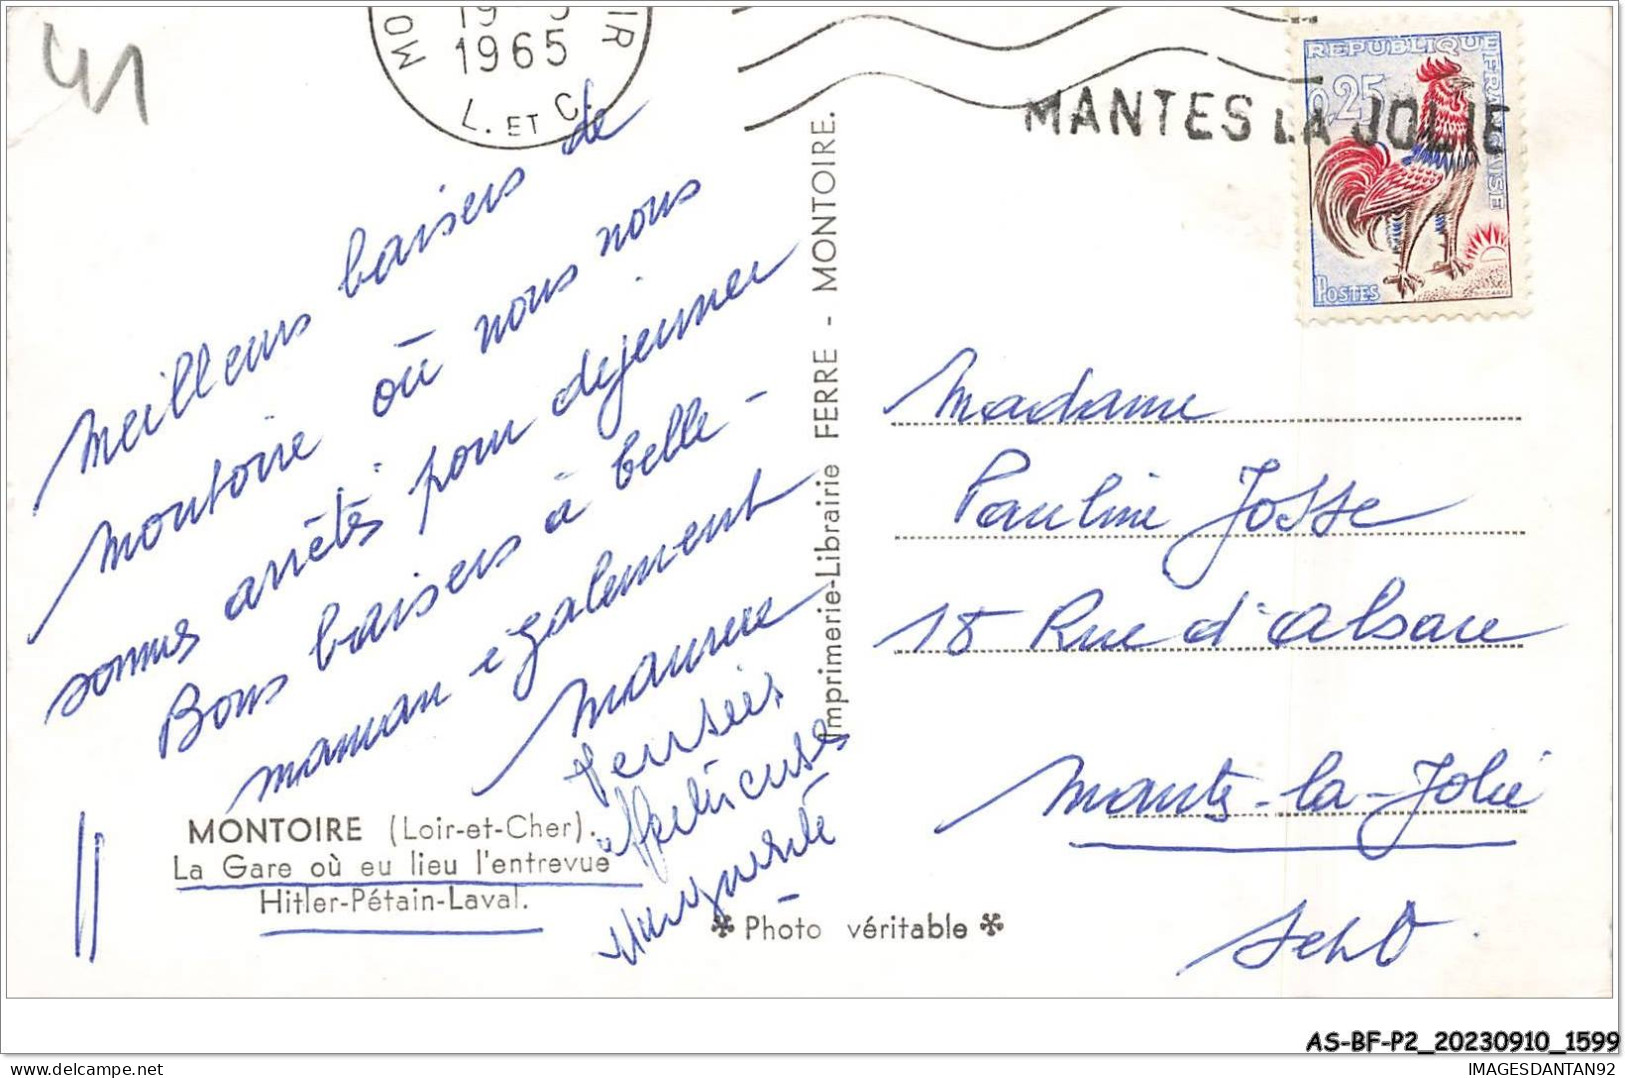 41
1965
L. ET C.
MANTES LA JOLIE
REPUBLIQUE FRANCAISE
0,25
POSTES
Meilleurs baisers de
Montoire où nous nous
sommes arrêtés pour dejeuner
Bons baisers à belle-
maman également
Maurice
Pensées
affectueuses
Marguerite
MONTOIRE (Loir-et-Cher).
La Gare où eu lieu l'entrevue
Hitler-Pétain-Laval.
Imprimerie-Librairie FERRE - MONTOIRE.
* Photo véritable *
Madame
Pauline Josse
18 Rue d'Alsace
Mantes-la-Jolie
S et O
AS-BF-P2_20230910_1599
IMAGESDANTAN92